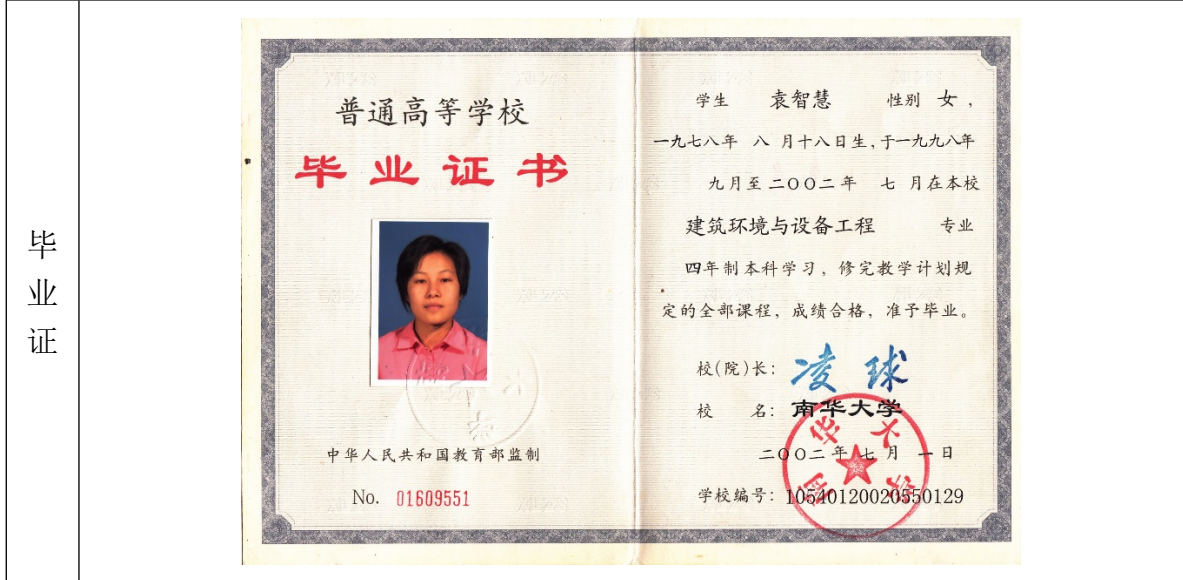 毕业证
普通高等学校
毕业证书
中华人民共和国教育部监制
No. 01609551
学生 袁智慧 性别 女,
一九七八年 八 月十八日生,于一九九八年
九月至二〇〇二年 七 月在本校
建筑环境与设备工程 专业
四年制本科学习，修完教学计划规
定的全部课程，成绩合格，准予毕业。
校(院)长: 凌球
校 名: 南华大学
二〇〇二年七月一日
学校编号: 105401200205550129
南华大学